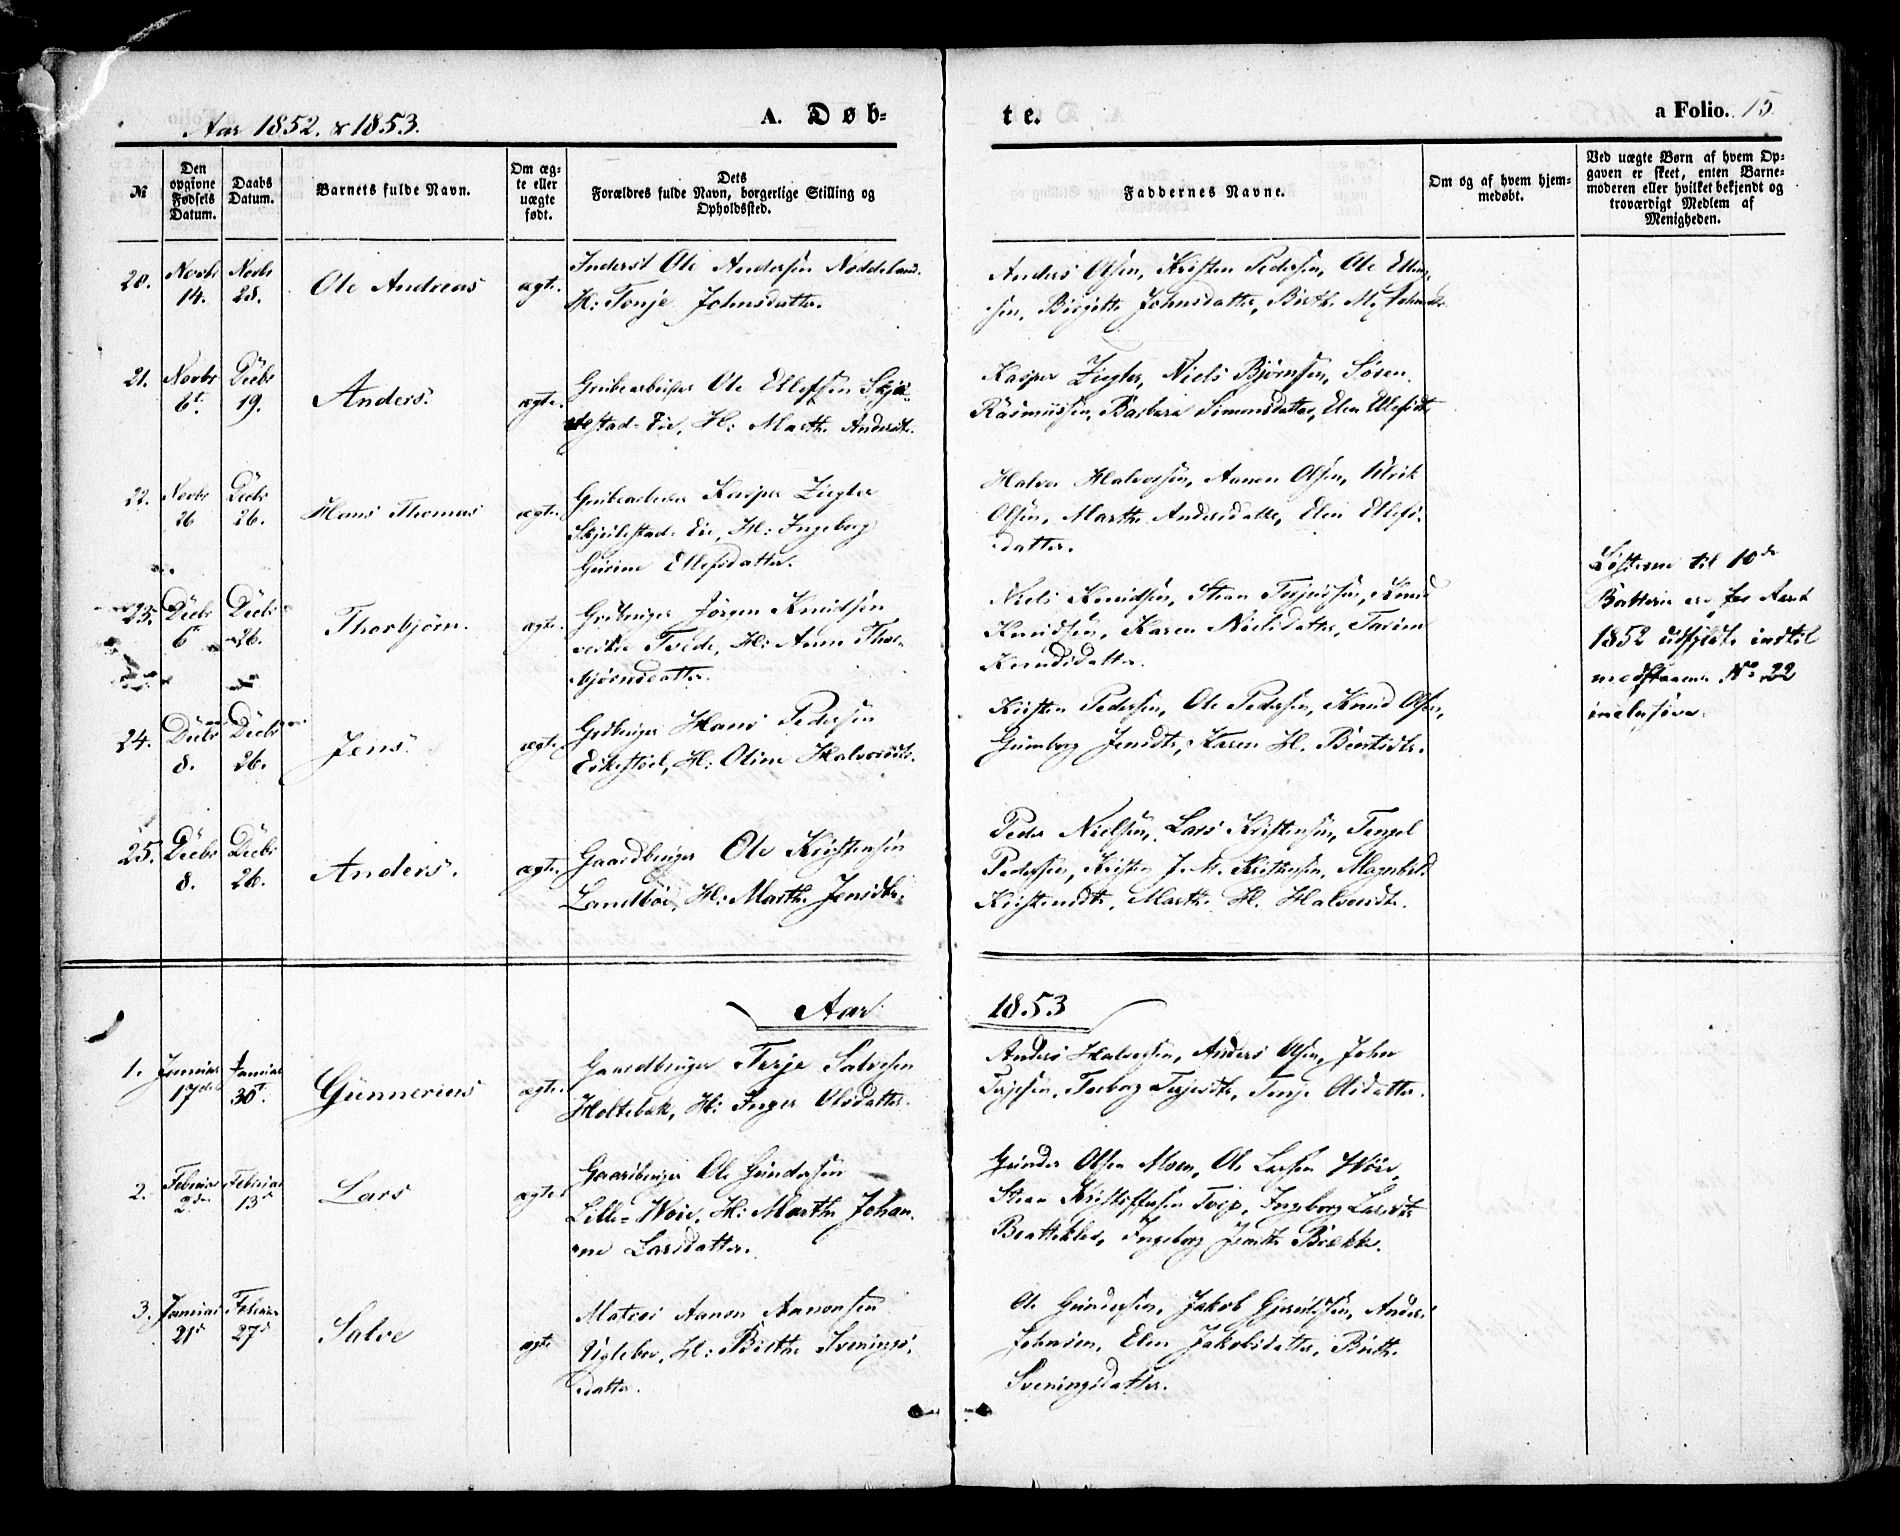 Aar 1852. & 1853.
A. Døb-
te.
a Folio. 15
№
Den opgivne Fødsels Datum.
Daabs Datum.
Barnets fulde Navn.
Om ægte eller uægte født.
Dets
Forældres fulde Navn, borgerlige Stilling og
Opholdssted.
Faddernes Navne.
Om og af hvem hjem-
medøbt.
Ved uægte Børn af hvem Op-
gaven er skeet, enten Barne-
moderen eller hvilket bekjendt og
troværdigt Medlem af
Menigheden.
20. Novbr 14. Novbr 28. Ole Andreas ægte. Inderst Ole Andersen Noddeland.
H: Tonje Johnsdatter.
Anders Olsen, Kristen Pedersen, Ole Ellev-
sen, Birgitte Johnsdatter, Birthe M.
21. Novbr 6t. Decbr 19. Anders. ægte. Grubearbeider Ole Ellefsen
stad-Eie, H: Marthe Andersdt.
Kasper Ziegler, Niels Bjørnsen, Søren
Rasmussen, Barbara Simonsdatter, Elen Ellefsdt.
22. Novbr 26 Decbr 26. Hans Thomas ægte. Grubearbeider Kasper Ziegler
Eie, H: Ingeborg
Gurine Ellefsdatter.
Halvor Halvorsen, Aanon Olsen, Ulrik
Olsen, Marthe Andersdatter, Elen Ellefs-
datter.
23. Decbr 6t Decbr 26. Thorbjørn. ægte. Gdbruger Jørgen Knudsen
Tvede, H: Anne Thor-
bjørnsdatter.
Niels Knudsen, Steen Terjesen, Knud
Knudsen, Karen Nielsdatter,
Knudsdatter.
24. Decbr 8. Decbr 26. Jens. ægte. Gdbruger Hans Pedersen
H: Oline Halvorsdtr.
Kristen Pedersen, Ole Pedersen, Knud Olsen,
Gunnborg Jensdtr, Karen H.
25. Decbr 8. Decbr 26. Anders. ægte. Gaardbruger Ole Kristensen
Landbøe, H: Marthe Jensdtr.
Peder Nielsen, Lars Kristensen, Tengel
Pedersen, Kristen J. M. Kristensen, Magnhild
Kristensdtr, Marthe H. Halvorsdtr.
Listerne til 10de
Batterie ere for Aaret
1852 udfyldte indtil
modstaaende No 22
inclusive.
Aar 1853
1. Januar 17de Januar 30t. Gunnerius ægte. Gaardbruger Terje Salvesen
Holtebek, H: Inger Olsdatter.
Anders Halvorsen, Anders Olsen, John
Terjesen, Torborg Terjesdtr, Tonje Olsdatter.
2. Februar 2den Februar 13d Lars ægte. Gaardbruger Ole Gundersen
Lille-Woie, H: Marthe Johan-
ne Larsdatter.
Gunder Olsen Moen, Ole Larsen Woie,
Steen Kristoffersen Ingeborg Larsdtr
Brattekleiv, Ingeborg Jensdtr Bække.
3. Januar 21d Februar 27d Salve ægte Matros Aanon Aanonsen
Uglebo, H: Birthe Svenings-
datter.
Ole Gundersen, Jakob Gjerulfsen, Anders
Johnsen, Elen Jakobsdatter, Birthe
Sveningsdatter.